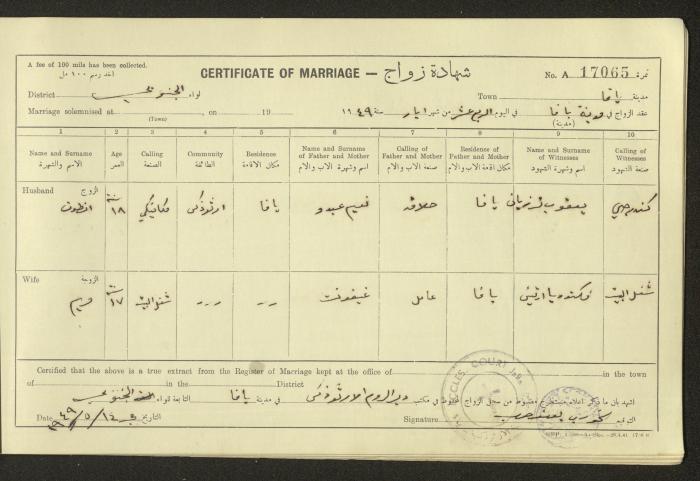 A fee of 100 mils has been collected.
اخذ رسم ١٠٠ مل
CERTIFICATE OF MARRIAGE — شهادة زواج
No. A 17065 نمرة
District لواء الجنوبي
Town مدينة يافا
Marriage solemnised at , on 19
(Town)
عقد الزواج في مدينة يافا في اليوم الرابع عشر من شهر ايار سنة ١٩٤٩
(مدينة)
1 2 3 4 5 6 7 8 9 10
Name and Surname Age Calling Community Residence Name and Surname of Father and Mother Calling of Father and Mother Residence of Father and Mother Name and Surname of Witnesses Calling of Witnesses
الاسم والشهرة العمر الصنعة الطائفة مكان الاقامة اسم وشهرة الاب والام صنعة الاب والام مكان اقامة الاب والام اسم وشهرة الشهود صنعة الشهود
Husband الزوج
انطون ١٨ سنة مكانيكي ارثوذكسي يافا نعيم عبدو حلاق يافا يعقوب
Wife الزوجة
مريم ١٧ سنة شغل البيت يافا عامل شغل البيت
Certified that the above is a true extract from the Register of Marriage kept at the office of in the town
of in the District
اشهد بان ما ذكر اعلاه مستخرج مضبوط من سجل الزواج المحفوظ في مكتب دير الروم الارثوذكس في مدينة يافا التابعة للواء الجنوبي
Date ١٩٤٩/٥/١٤ التاريخ في
Signature خوري التوقيع
ECCLES. COURT Jaffa